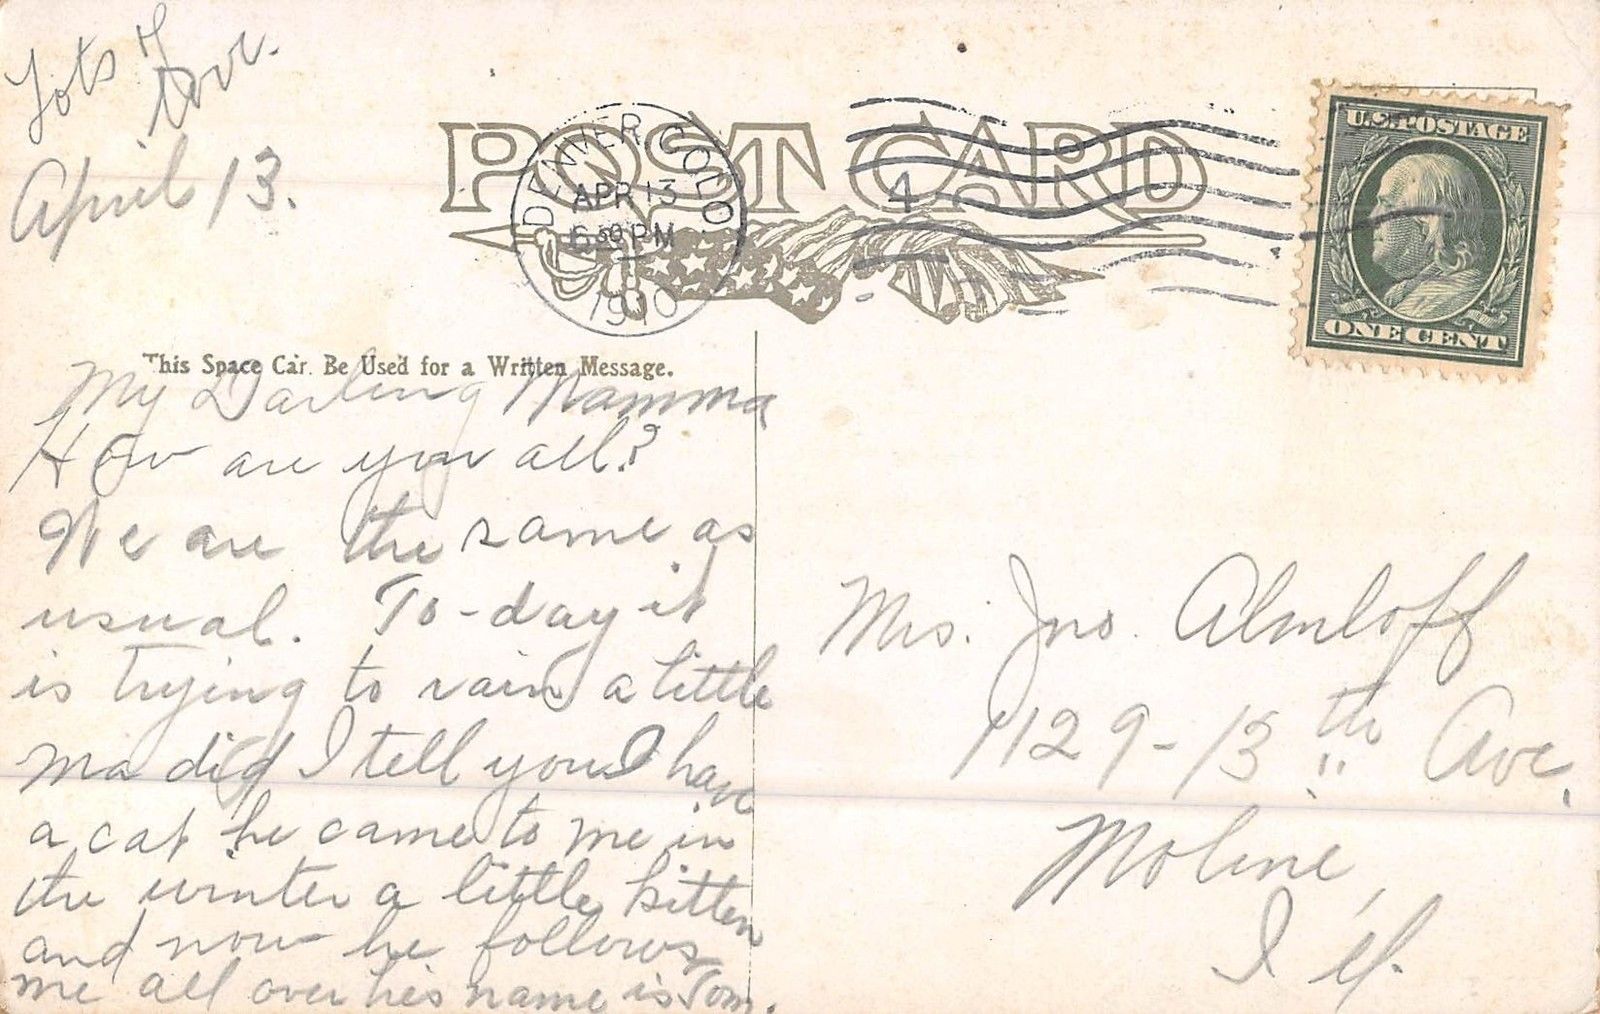 Lots of
Love.
April 13.
POST CARD
DENVER COLO.
APR 13
6 30 PM
1910
4
U.S. POSTAGE
ONE CENT
This Space Can Be Used for a Written Message.
My Darling Mamma
How are you all?
We are the same as
usual. To-day it
is trying to rain a little
ma did I tell you I have
a cat he came to me in
the winter a little kitten
and now he follows
me all over his name is Tom.
Mrs. Jno. Almloff
1129-13th Ave,
Moline,
Ill.